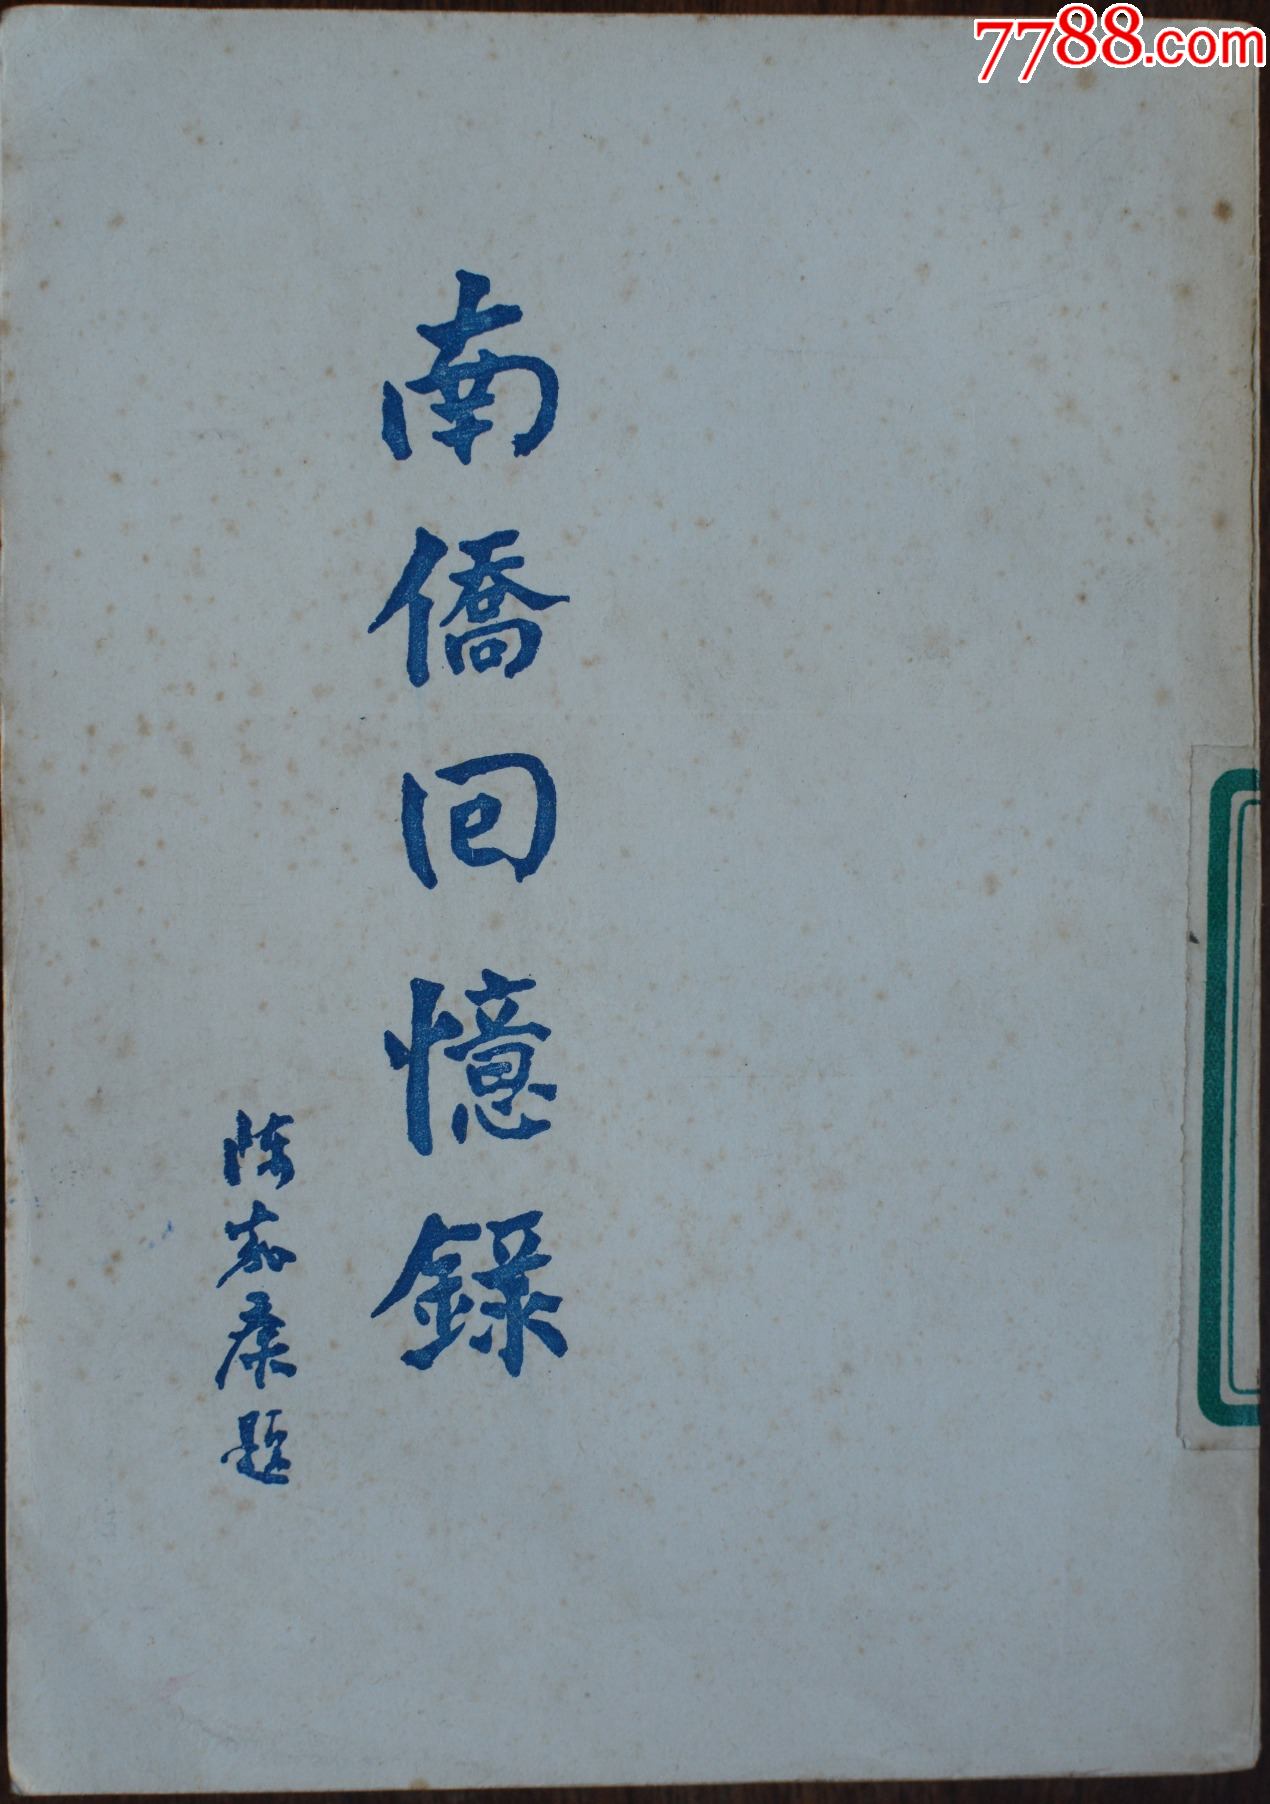 7788.com
南僑回憶錄
陈嘉庚題